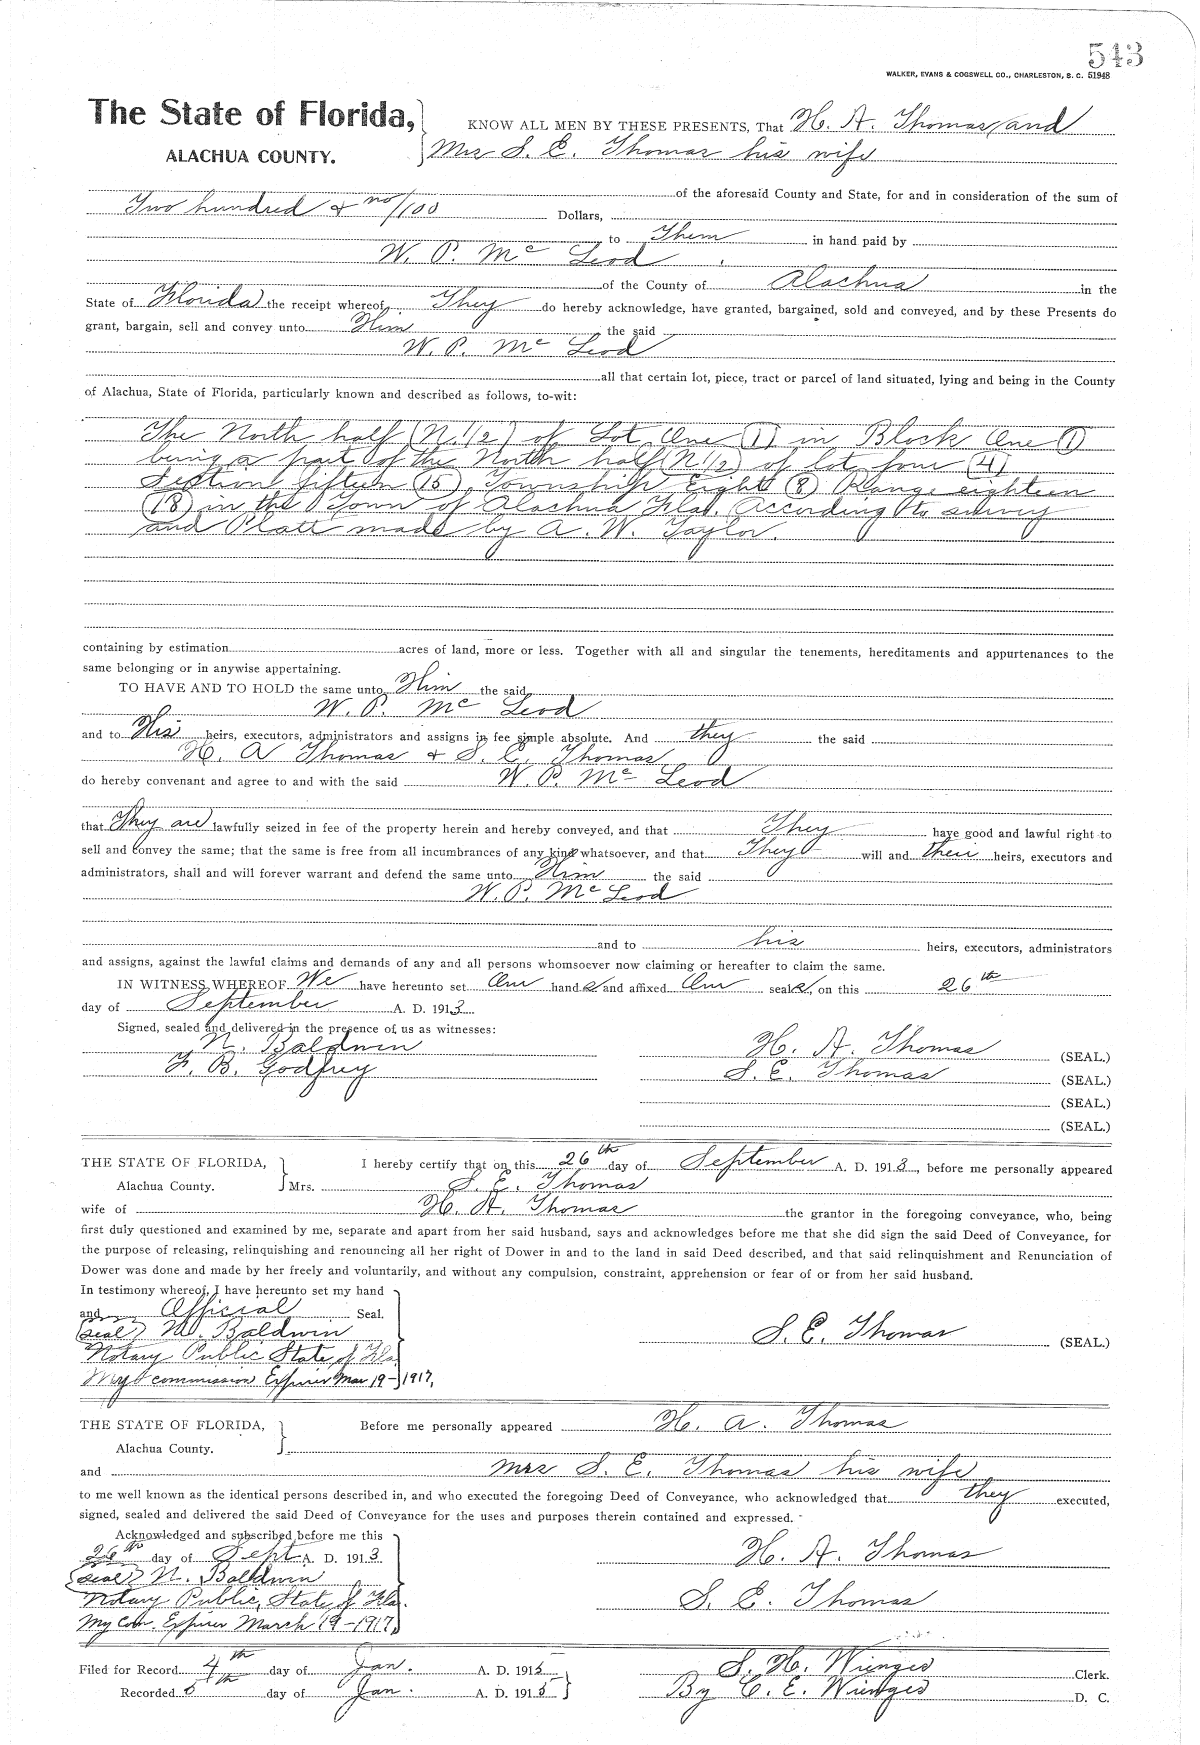 543
WALKER, EVANS & COGSWELL CO., CHARLESTON, S. C. 51948
The State of Florida, KNOW ALL MEN BY THESE PRESENTS, That H. A. Thomas and
ALACHUA COUNTY. Mrs S. E. Thomas his wife
of the aforesaid County and State, for and in consideration of the sum of
Two hundred & no/100 Dollars,
to Them in hand paid by
W. P. Mc Leod
of the County of Alachua in the
State of Florida the receipt whereof They do hereby acknowledge, have granted, bargained, sold and conveyed, and by these Presents do
grant, bargain, sell and convey unto Him the said
W. P. Mc Leod
all that certain lot, piece, tract or parcel of land situated, lying and being in the County
of Alachua, State of Florida, particularly known and described as follows, to-wit:
The North half (N.1/2) of Lot One (1) in Block One (1)
being a part of the North half (N1/2) of lot four (4)
Section fifteen (15), Township Eight (8) Range eighteen
(18) in the Town of Alachua Fla. According to survey
and Platt made by A. W. Taylor.
containing by estimation acres of land, more or less. Together with all and singular the tenements, hereditaments and appurtenances to the
same belonging or in anywise appertaining.
TO HAVE AND TO HOLD the same unto Him the said
W. P. Mc Leod
and to His heirs, executors, administrators and assigns in fee simple absolute. And they the said
H. A Thomas & S. E. Thomas
do hereby convenant and agree to and with the said W. P. Mc Leod
that They are lawfully seized in fee of the property herein and hereby conveyed, and that They have good and lawful right to
sell and convey the same; that the same is free from all incumbrances of any kind whatsoever, and that They will and their heirs, executors and
administrators, shall and will forever warrant and defend the same unto Him the said
W. P. Mc Leod
and to his heirs, executors, administrators
and assigns, against the lawful claims and demands of any and all persons whomsoever now claiming or hereafter to claim the same.
IN WITNESS WHEREOF We have hereunto set Our hand s and affixed Our seal s, on this 26th
day of September A. D. 1913
Signed, sealed and delivered in the presence of us as witnesses:
N. Baldwin H. A. Thomas (SEAL.)
F. B. Godfrey S. E. Thomas (SEAL.)
(SEAL.)
(SEAL.)
THE STATE OF FLORIDA, I hereby certify that on this 26th day of September A. D. 1913, before me personally appeared
Alachua County. Mrs. S. E. Thomas
wife of H. A. Thomas the grantor in the foregoing conveyance, who, being
first duly questioned and examined by me, separate and apart from her said husband, says and acknowledges before me that she did sign the said Deed of Conveyance, for
the purpose of releasing, relinquishing and renouncing all her right of Dower in and to the land in said Deed described, and that said relinquishment and Renunciation of
Dower was done and made by her freely and voluntarily, and without any compulsion, constraint, apprehension or fear of or from her said husband.
In testimony whereof, I have hereunto set my hand
and Official Seal.
(seal) N. Baldwin S. E. Thomas (SEAL.)
Notary Public State of Fla.
My commission Expires Mar 19-1917,
THE STATE OF FLORIDA, Before me personally appeared H. A. Thomas
Alachua County.
and Mrs S. E. Thomas his wife
to me well known as the identical persons described in, and who executed the foregoing Deed of Conveyance, who acknowledged that they executed,
signed, sealed and delivered the said Deed of Conveyance for the uses and purposes therein contained and expressed.
Acknowledged and subscribed before me this
26th day of Sept A. D. 1913 H. A. Thomas
(seal) N. Baldwin
Notary Public, State of Fla. S. E. Thomas
My Com. Expires March 19-1917,
Filed for Record 4th day of Jan. A. D. 1915 S. H. Wienges Clerk.
Recorded 5th day of Jan. A. D. 1915 By C. E. Wienges D. C.